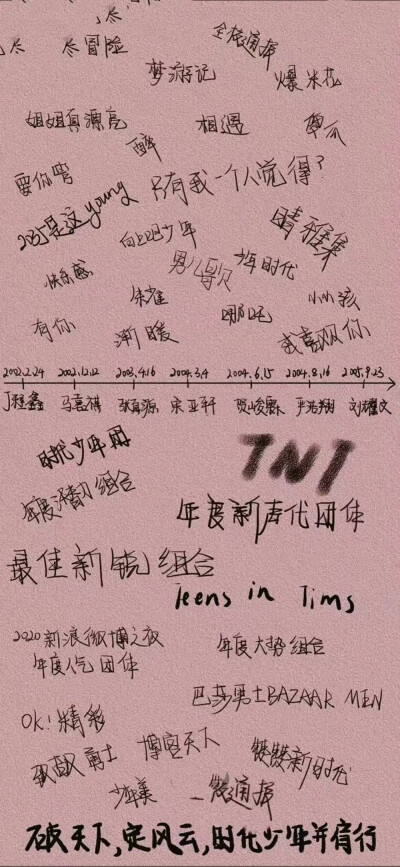 尽冒险
全校通报
梦游记
爆米花
姐姐真漂亮
相遇
醉
要你管
只有我一个人觉得?
2035是这young
向上吧少年
晴雅集
快乐感
男儿歌
少年时代
朱雀
哪吒
小小孩
有你
渐暖
我喜欢你
2002.2.24 2002.12.12 2003.4.16 2004.3.4 2004.6.15 2004.8.16 2005.9.23
丁程鑫 马嘉祺 张真源 宋亚轩 贺峻霖 严浩翔 刘耀文
时代少年团
TNT
年度活力组合
年度新声代团体
最佳新锐组合
Teens in Tims
2020新浪微博之夜
年度人气团体
年度大势组合
巴莎男士BAZAAR MEN
OK!精彩
博客天下
赞赞新时代
少年美
破天下,定风云,时代少年并肩行